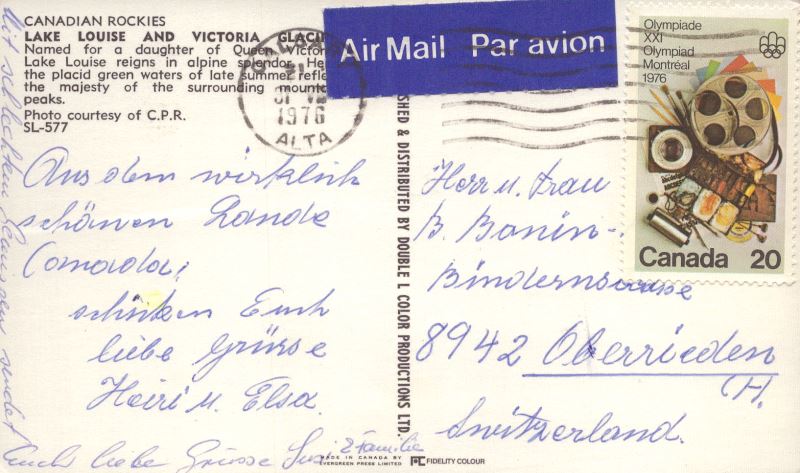 CANADIAN ROCKIES
LAKE LOUISE AND VICTORIA GLACIE
Named for a daughter of Queen Victori
Lake Louise reigns in alpine splendor. Her
the placid green waters of late summer refle
the majesty of the surrounding mounta
peaks.
Photo courtesy of C.P.R.
SL-577
21
1976
ALTA
Air Mail Par avion
Olympiade
XXI
Olympiad
Montréal
1976
Canada 20
Aus dem wirklich
schönen Lande
Canada,
schicken Euch
liebe Grüsse
Heiri u. Elsa.
Mit schlechtem Gewissen sendet
Euch liebe Grüsse & Familie
SHED & DISTRIBUTED BY DOUBLE L COLOR PRODUCTIONS LTD.
Herr u. Frau
B. Bonin-
8942 Oberrieden
CH.
Switzerland.
MADE IN CANADA BY
EVERGREEN PRESS LIMITED
FIDELITY COLOUR